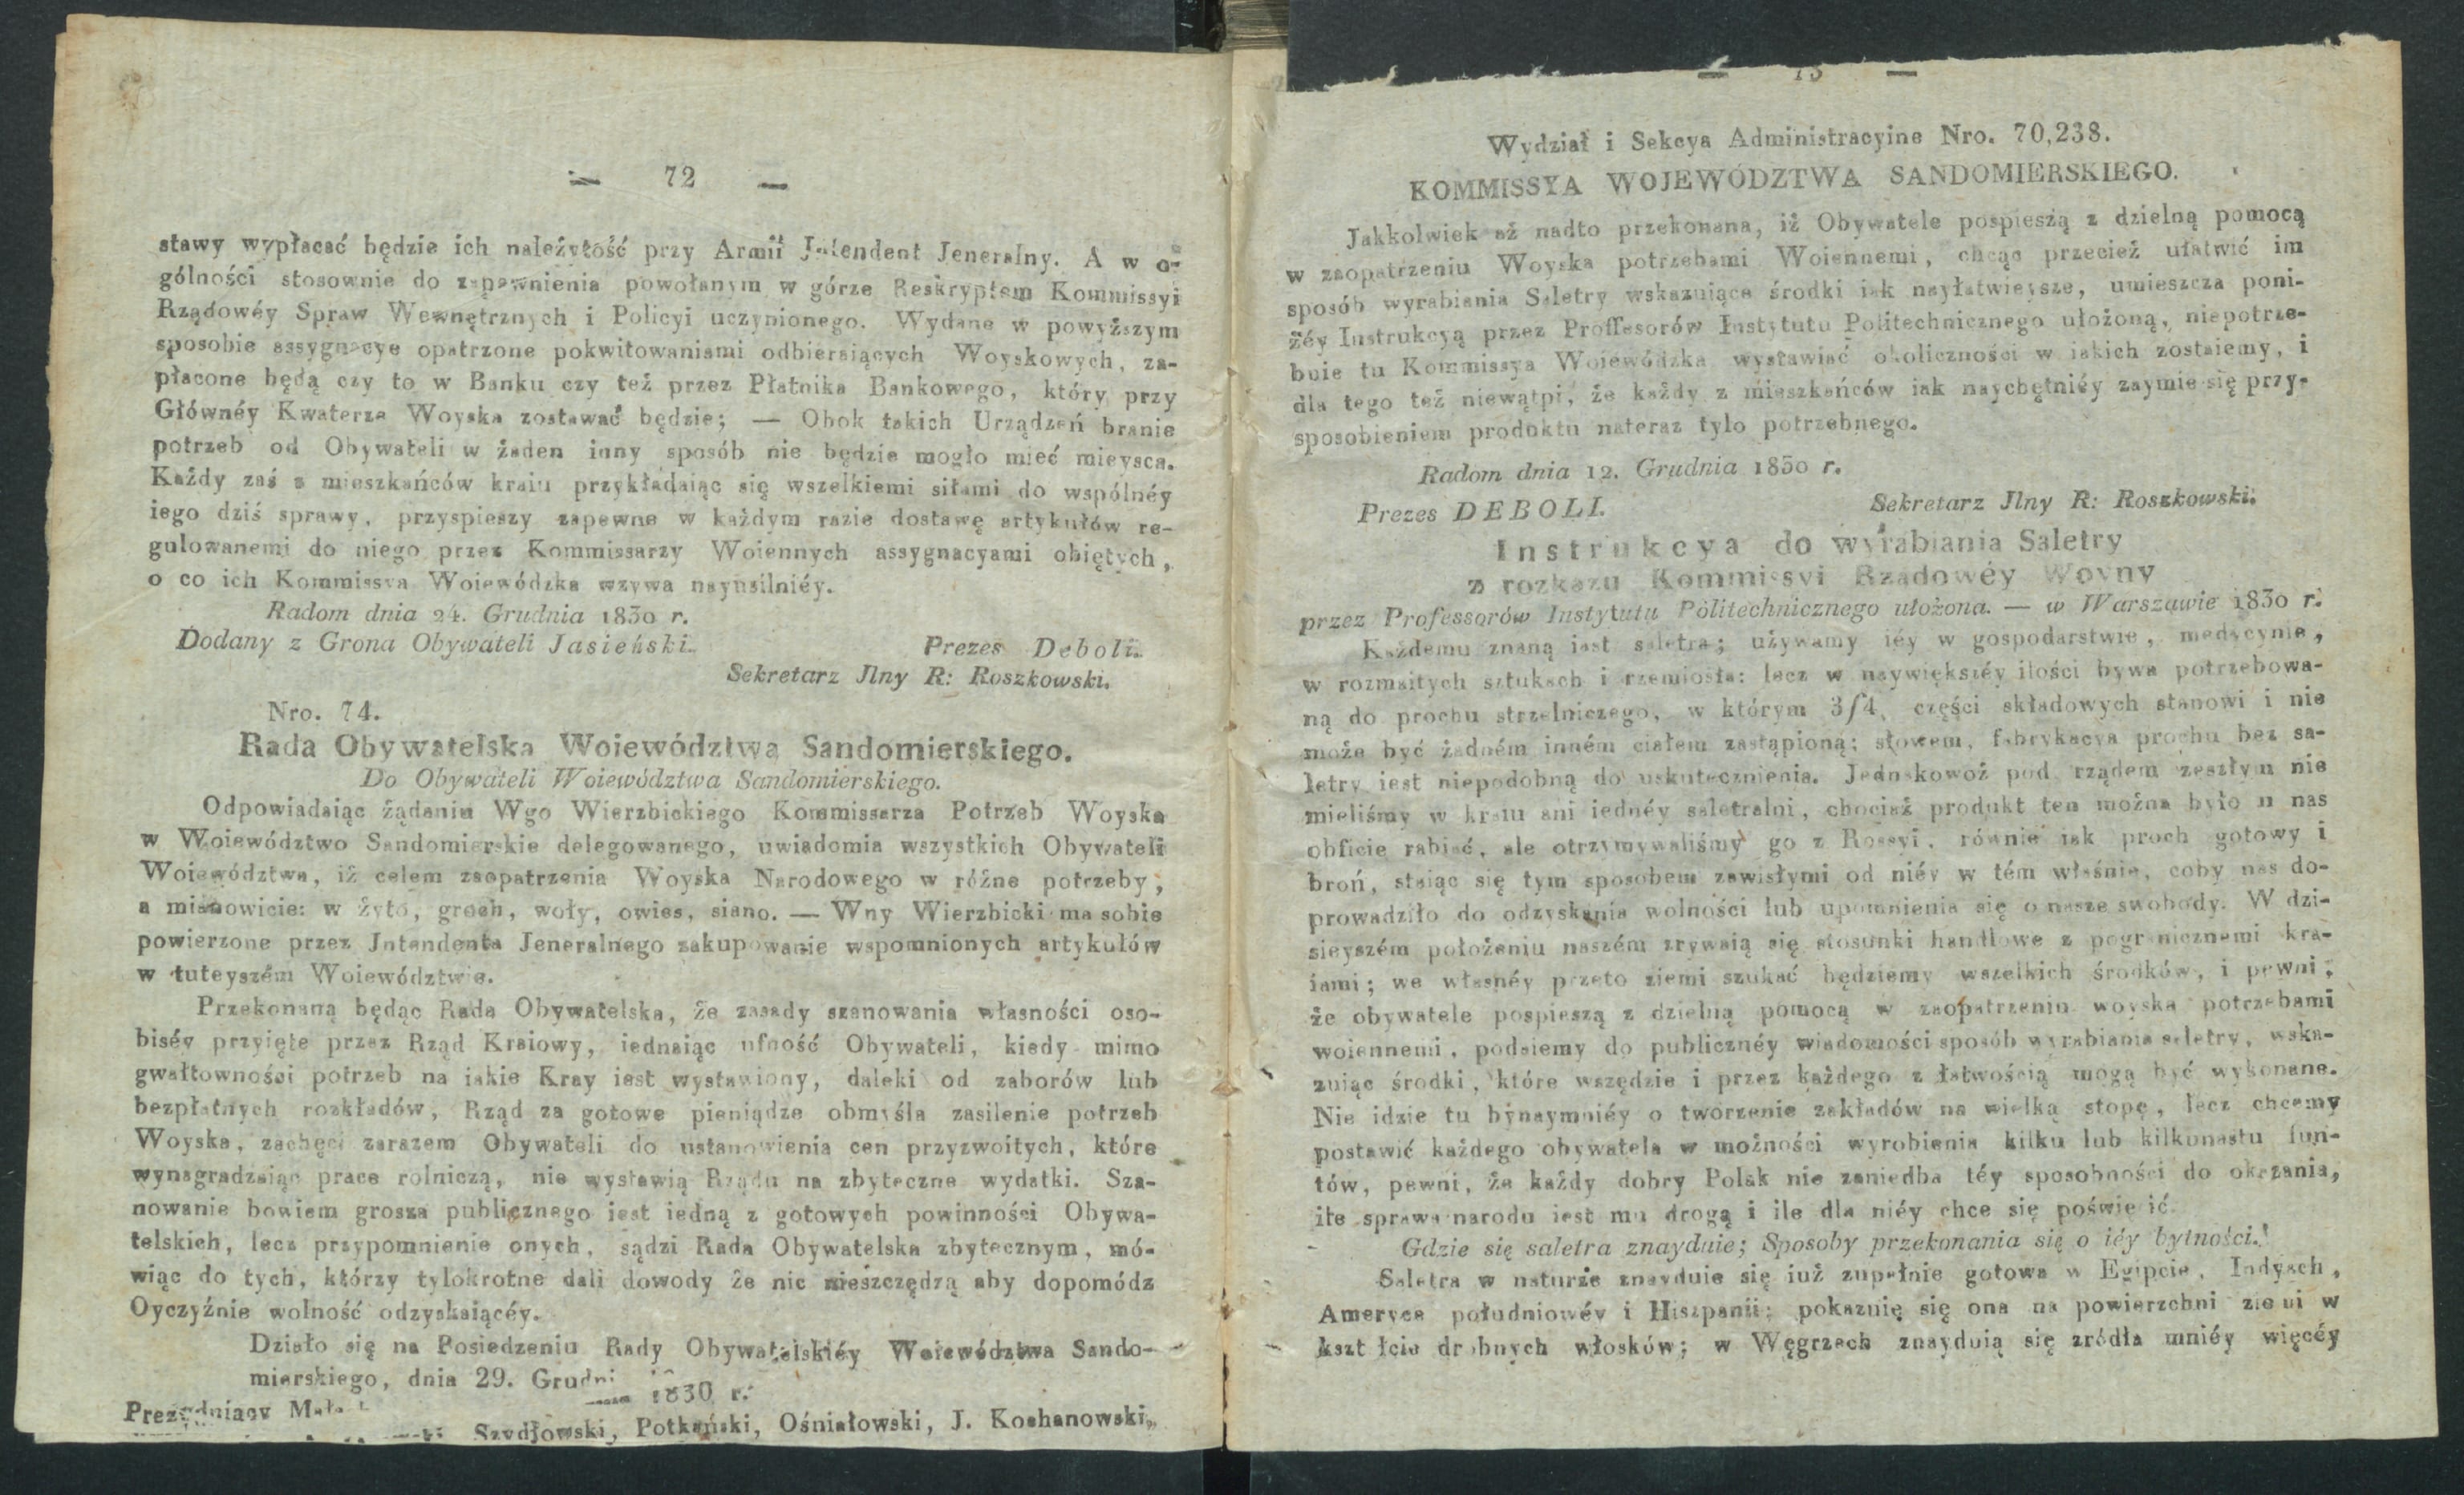 — 72 —
stawy wypłacać będzie ich należytość przy Armii Jntendent Jeneralny. A w o-
gólności stosownie do zapewnienia powołanym w górze Reskryptem Kommissyi
Rządowéy Spraw Wewnętrznych i Policyi uczynionego. Wydane w powyższym
sposobie assygnacye opatrzone pokwitowaniami odbieraiących Woyskowych, za-
płacone będą czy to w Banku czy też przez Płatnika Bankowego, który przy
Główney Kwaterze Woyska zostawać będzie; — Obok takich Urządzeń branie
potrzeb od Obywateli w żaden inny sposób nie będzie mogło mieć mieysca.
Każdy zaś z mieszkańców kraiu przykładaiąc się wszelkiemi siłami do wspólnéy
iego dziś sprawy, przyspieszy zapewne w każdym razie dostawę artykułów re-
gulowanemi do niego przez Kommissarzy Woiennych assygnacyami obiętych,
o co ich Kommissya Woiewódzka wzywa nayusilniéy.
Radom dnia 24. Grudnia 1830 r.
Dodany z Grona Obywateli Jasieński. Prezes Deboli.
Sekretarz Jlny R: Roszkowski.
Nro. 74.
Rada Obywatelska Woiewództwa Sandomierskiego.
Do Obywateli Woiewództwa Sandomierskiego.
Odpowiadaiąc żądaniu Wgo Wierzbickiego Kommissarza Potrzeb Woyska
w Woiewództwo Sandomierskie delegowanego, uwiadomia wszystkich Obywateli
Woiewództwa, iż celem zaopatrzenia Woyska Narodowego w różne potrzeby,
a mianowicie: w żyto, groch, woły, owies, siano. — Wny Wierzbicki ma sobie
powierzone przez Jntendenta Jeneralnego zakupowanie wspomnionych artykułów
w tuteyszém Woiewództwie.
Przekonaną będąc Rada Obywatelska, że zasady szanowania własności oso-
bistéy przyięte przez Rząd Kraiowy, iednaiąc ufność Obywateli, kiedy mimo
gwałtowności potrzeb na iakie Kray iest wystawiony, daleki od zaborów lub
bezpłatnych rozkładów, Rząd za gotowe pieniądze obmyśla zasilenie potrzeb
Woyska, zachęci zarazem Obywateli do ustanowienia cen przyzwoitych, które
wynagradzaiąc prace rolniczą, nie wystawią Rządu na zbyteczne wydatki. Sza-
nowanie bowiem grosza publicznego iest iedną z gotowych powinności Obywa-
telskich, lecz przypomnienie onych, sądzi Rada Obywatelska zbytecznym, mó-
wiąc do tych, którzy tylokrotne dali dowody że nic nieszczędzą aby dopomódz
Oyczyźnie wolność odzyskaiącéy.
Działo się na Posiedzeniu Rady Obywatelskiéy Woiewództwa Sando-
mierskiego, dnia 29. Grudni 1830 r.
Prezyduiący
Szydłowski, Potkański, Ośniałowski, J. Kochanowski,
— 73 —
Wydział i Sekcya Administracyine Nro. 70,238.
KOMMISSYA WOJEWÓDZTWA SANDOMIERSKIEGO.
Jakkolwiek aż nadto przekonana, iż Obywatele pospieszą z dzielną pomocą
w zaopatrzeniu Woyska potrzebami Woiennemi, chcąc przecież ułatwić im
sposób wyrabiania Saletry wskazuiące środki iak nayłatwieysze, umieszcza poni-
żéy Instrukcyą przez Proffesorów Instytutu Politechnicznego ułożoną, niepotrze-
buie tu Kommissya Woiewódzka wystawiać okoliczności w iakich zostaiemy, i
dla tego też niewątpi, że każdy z mieszkańców iak naychętniéy zaymie się przy-
sposobieniem produktu nateraz tylo potrzebnego.
Radom dnia 12. Grudnia 1830 r.
Prezes DEBOLI. Sekretarz Jlny R: Roszkowski.
Instrukcya do wyrabiania Saletry
z rozkazu Kommissyi Rządowéy Woyny
przez Professorów Instytutu Politechnicznego ułożona. — w Warszawie 1830 r.
Każdemu znaną iest saletra; używamy iéy w gospodarstwie, medycynie,
w rozmaitych sztukach i rzemiosła: lecz w naywiększéy ilości bywa potrzebowa-
ną do prochu strzelniczego, w którym 3/4 części składowych stanowi i nie
może być żadném inném ciałem zastąpioną; słowem, fabrykacya prochu bez sa-
letry iest niepodobną do uskutecznienia. Jednakowoż pod rządem zeszłym nie
mieliśmy w kraiu ani iednéy saletralni, chociaż produkt ten można było u nas
obficie rabiać, ale otrzymywaliśmy go z Rossyi, równie iak proch gotowy i
broń, staiąc się tym sposobem zawisłymi od niéy w tém właśnie, coby nas do-
prowadziło do odzyskania wolności lub upomnienia się o nasze swobody. W dzi-
sieyszém położeniu naszém zrywaią się stosunki handlowe z pogranicznemi kra-
iami; we własnéy przeto ziemi szukać będziemy wszelkich środków, i pewni,
że obywatele pospieszą z dzielną pomocą w zaopatrzeniu woyska potrzebami
woiennemi, podaiemy do publicznéy wiadomości sposób wyrabiania saletry, wska-
zuiąc środki, które wszędzie i przez każdego z łatwością mogą być wykonane.
Nie idzie tu bynaymniéy o tworzenie zakładów na wielką stopę, lecz chcemy
postawić każdego obywatela w możności wyrobienia kilku lub kilkonastu fun-
tów, pewni, że każdy dobry Polak nie zaniedba téy sposobności do okazania,
ile sprawa narodu iest mu drogą i ile dla niéy chce się poświę ić.
Gdzie się saletra znayduie; Sposoby przekonania się o iéy bytności.
Saletra w naturze znayduie się iuż zupełnie gotowa w Egipcie, Indyach,
Ameryce południowéy i Hiszpanii; pokazuię się ona na powierzchni ziemi w
kszt łcie drobnych włosków; w Węgrzech znayduią się zródła mniéy więcéy